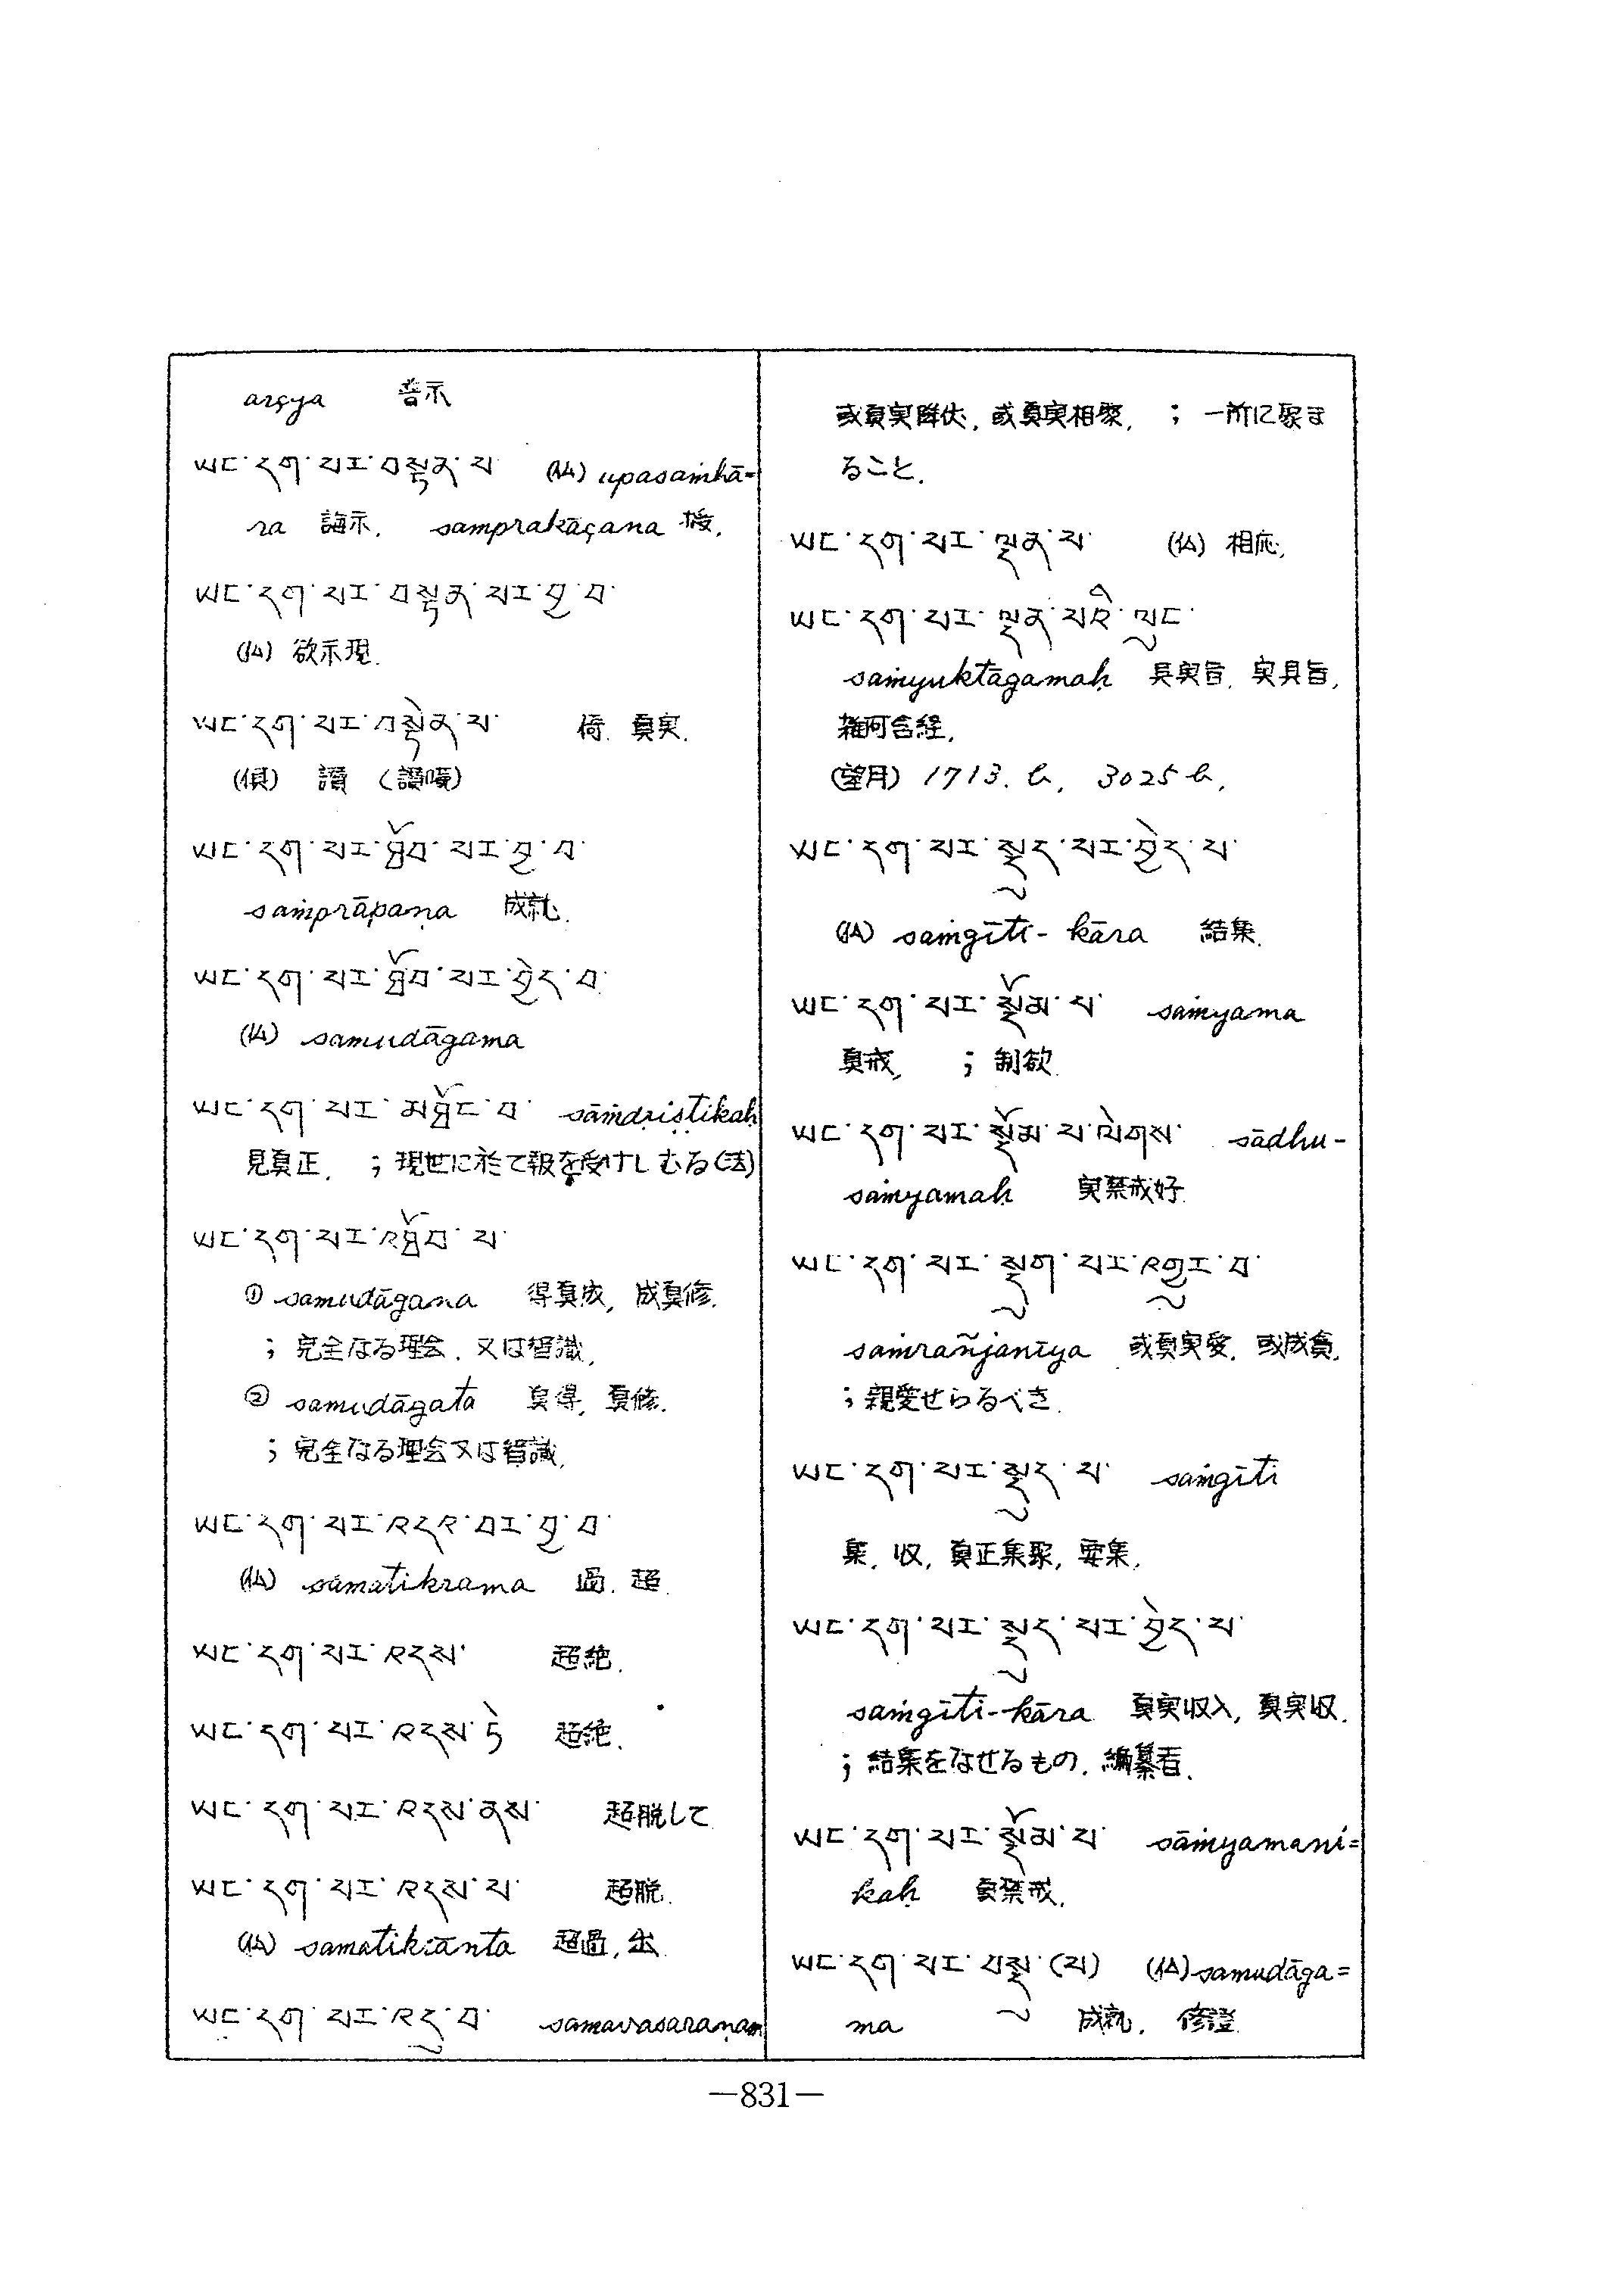 arçya 普示
ཡང་དག་པར་བསྟན་པ (仏) upasaṁhā=
ra 誨示. saṃprakāçana 授.
ཡང་དག་པར་བསྟན་པར་བྱ་བ་
(仏) 欲示現.
ཡང་དག་པར་བསྟེན་པ་ 倚. 真実.
(倶) 讀 (讃嘆)
ཡང་དག་པར་ཐོབ་པར་བྱ་བ་
saṁprāpaṇa 成就.
ཡང་དག་པར་ཐོབ་པར་བྱེད་བ
(仏) samudāgama
ཡང་དག་པར་མཐོང་བ་ sāṁdṛiṣṭikaḥ
見真正. ; 現世に於て報を受けしむる(法)
ཡང་དག་པར་འཐོབ་པ་
① samudāgana 得真成, 成真修.
; 完全なる理会. 又は智識.
② samudāgata 真得, 真修.
; 完全なる理会又は智識.
ཡང་དག་པར་འདའ་བར་བྱ་བ་
(仏) samatikrama 過. 超.
ཡང་དག་པར་འདས་ 超絶.
ཡང་དག་པར་འདས་ཏེ 超絶.
ཡང་དག་པར་འདས་ནས་ 超脱して
ཡང་དག་པར་འདས་པ་ 超脱.
(仏) samatikrānta 超過, 出.
ཡང་དག་པར་འདུ་བ་ samavasaraṇam
或真実降伏, 或真実相聚, ; 一所に聚ま
ること.
ཡང་དག་པར་ལྡན་པ་ (仏) 相応.
ཡང་དག་པར་ལྡན་པའི་ལུང་
saṁyuktāgamaḥ 具実旨. 実具旨,
雑阿含経.
(望月) 1713. b, 3025 b,
ཡང་དག་པར་སྡུད་པར་བྱེད་པ་
(仏) saṁgīti-kāra 結集.
ཡང་དག་པར་སྡོམ་པ་ saṁyama
真戒, ; 制欲.
ཡང་དག་པར་སྡོམ་པ་ལེགས་ sādhu-
saṁyamaḥ 実禁戒好.
ཡང་དག་པར་སྡུག་པར་འགྱུར་བ་
saṁrañjanīya 或真実愛. 或成貪.
; 親愛せらるべき.
ཡང་དག་པར་སྡུད་པ་ saṁgīti
集, 収, 真正集聚, 要集.
ཡང་དག་པར་སྡུད་པར་བྱེད་པ་
saṁgīti-kāra 真実収入, 真実収.
; 結集をなせるもの. 編纂者.
ཡང་དག་པར་སྡོམ་པ་ sāṁyamani=
kaḥ 真禁戒.
ཡང་དག་པར་བསྡུ་(པ) (仏) samudāga=
ma 成就. 修證.
—831—